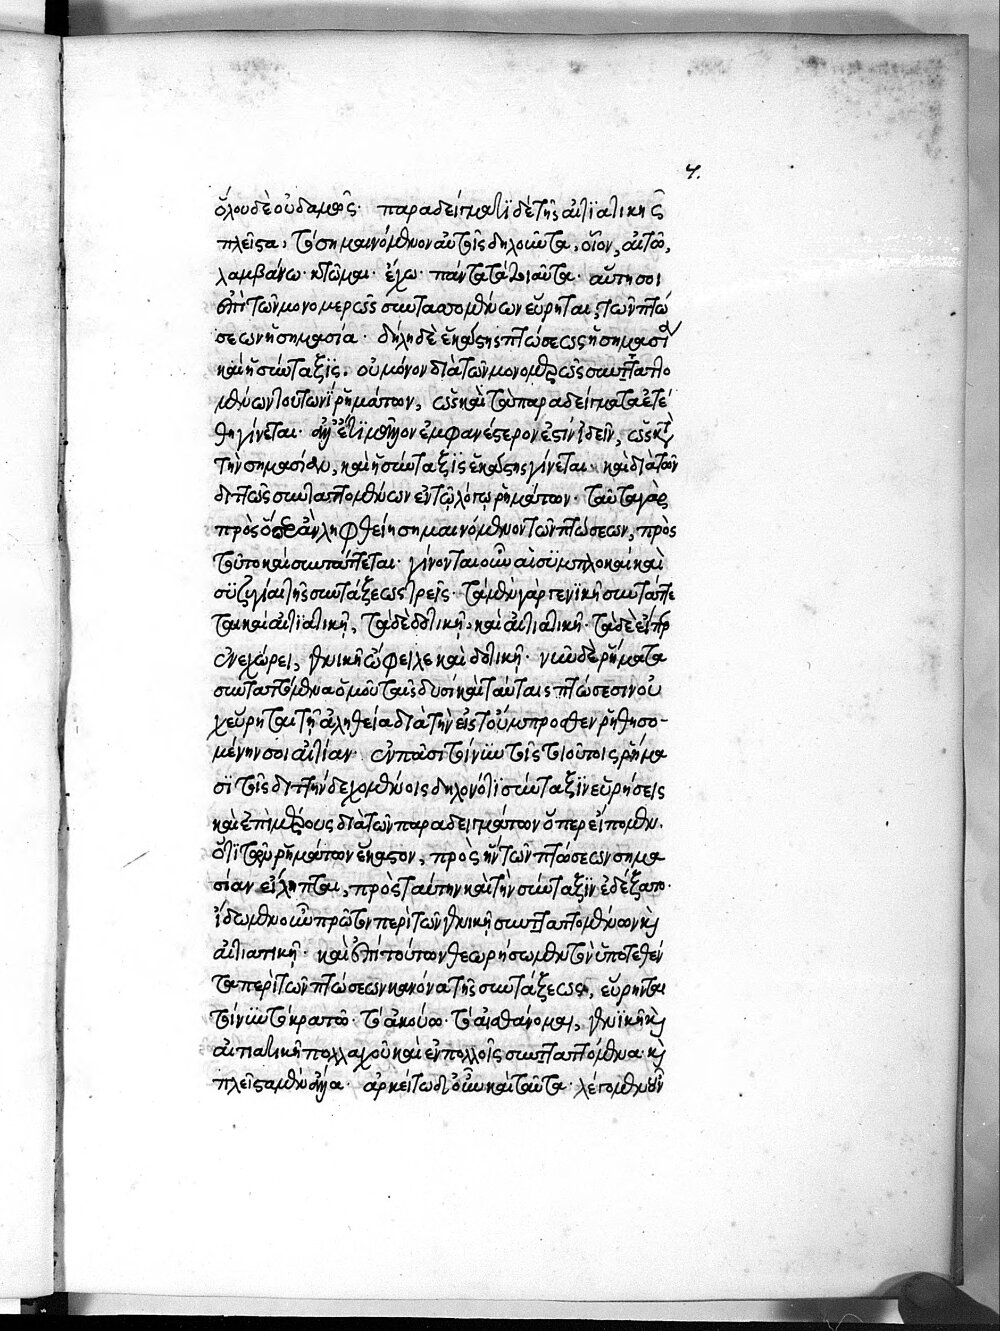 4.
ὅλου δὲ οὐδαμῶς· παραδείγματι δὲ τῆς αἰτιατικῆς
πλεῖστα, τὸ σημαινόμενον αὐτοῖς δηλοῦντα, οἷον, αἰτῶ,
λαμβάνω· κτῶμαι· ἔχω· πάντα τὰ τοιαῦτα· αὕτη σοι
ἐπὶ τῶν μονομερῶς συντασσομένων εὕρηται τῶν πτώ
σεων ἡ σημασία· δήλη δὲ ἑκάστης πτώσεως ἡ σημασία
καὶ ἡ σύνταξις, οὐ μόνον διὰ τῶν μονομερῶς συνταττο
μένων τουτωνὶ ῥημάτων, ὡς καὶ τὰ παραδείγματα ἐτέ
θη γίνεται· ἀλλ' ἔτι μᾶλλον ἐμφανέστερον ἔστιν ἰδεῖν, ὡς κατὰ
τὴν σημασίαν, καὶ ἡ σύνταξις ἑκάστης γίνεται καὶ διὰ τῶν
διττῶς συνταττομένων ἐν τῷ λόγῳ ῥημάτων· ταῦτα γὰρ
πρὸς ὃ ἂν ληφθείη σημαινόμενον τῶν πτώσεων, πρὸς
τοῦτο καὶ συντάττεται· γίνονται οὖν αἱ συμπλοκαὶ καὶ
συζυγίαι τῆς συντάξεως τρεῖς· τὰ μὲν γὰρ γενικῇ συντάττε
ται καὶ αἰτιατικῇ, τὰ δὲ δοτικῇ, καὶ αἰτιατικῇ· τὰ δὲ εἴπερ
ἐνεχώρει, γενικῇ ὤφειλε καὶ δοτικῇ· νῦν δὲ ῥήματα
συνταττόμενα ὁμοῦ ταῖς δυσὶ καὶ ταύταις πτώσεσιν οὐ
χ εὕρηται τῇ ἀληθείᾳ διὰ τὴν εἰς τοὔμπροσθεν ῥηθησο-
μένην σοι αἰτίαν· ἐν πᾶσι τοίνυν τοῖς τοιούτοις ῥήμα
σι τοῖς διττὴν δεχομένοις δηλονότι σύνταξιν εὑρήσεις
καὶ ἐπὶ μέρους διὰ τῶν παραδειγμάτων ὅπερ εἴπομεν.
ὅτι τῶν ῥημάτων ἕκαστον, πρὸς ἣν τῶν πτώσεων σημα
σίαν εἴληπται, πρὸς ταύτην καὶ τὴν σύνταξιν ἐδέξατο·
ἴδωμεν οὖν πρῶτον περὶ τῶν γενικῇ συνταττομένων καὶ
αἰτιατικῇ· καὶ ἐπὶ τούτων θεωρήσωμεν τὸν ὑποτεθέν
τα περὶ τῶν πτώσεων κανόνα τῆς συντάξεως, εὕρηνται
τοίνυν τὸ κρατῶ· τὸ ἀκούω· τὸ αἰσθάνομαι, γενικῇ καὶ
αἰτιατικῇ πολλαχοῦ καὶ ἐν πολλοῖς συνταττόμενα· καὶ
πλεῖστα μὲν ἄλλα· ἀρκείτω δ' οὖν καὶ ταῦτα· λέγομεν οὖν